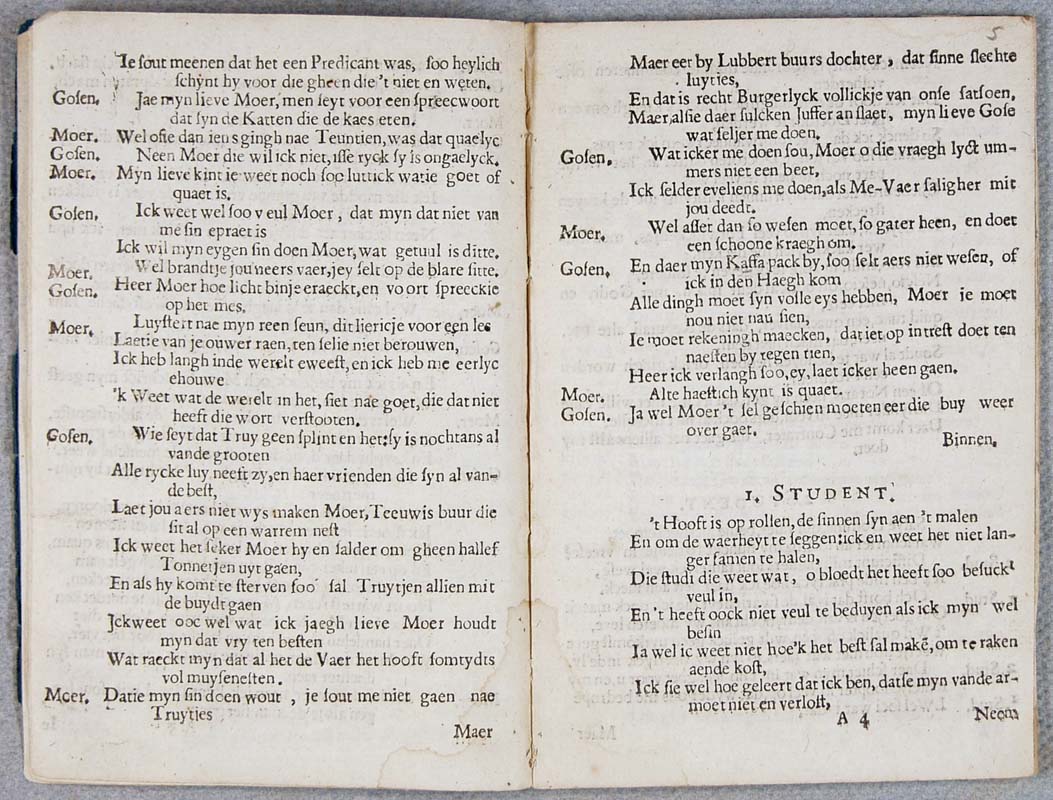 Ie sout meenen dat het een Predicant was, soo heylich
schynt hy voor die gheen die 't niet en weten.
Gosen. Jae myn lieve Moer, men seyt voor een spreecwoort
dat syn de Katten die de kaes eten.
Moer. Wel ofie dan iens gingh nae Teuntien, was dat quaelyc
Gosen. Neen Moer die wil ick niet, isse ryck sy is ongaelyck.
Moer. Myn lieve kint ie weet noch sop luttick watie goet of
quaet is.
Gosen. Ick weet wel soo veul Moer, dat myn dat niet van
me sin epraet is
Ick wil myn eygen sin doen Moer, wat getuul is ditte.
Moer. Wel brandtje jou neers vaer, jey selt op de blare sitte.
Gosen. Heer Moer hoe licht binje eraeckt, en voort spreeckie
op het mes.
Moer. Luystert nae myn reen seun, dit liericje voor een les
Laetie van je ouwer raen, ten selie niet berouwen,
Ick heb langh inde werelt eweest, en ick heb me eerlyc
ehouwe
'k Weet wat de werelt in het, siet nae goet, die dat niet
heeft die wort verstooten.
Gosen. Wie seyt dat Truy geen splint en het: sy is nochtans al
vande grooten
Alle rycke luy neeft zy, en haer vrienden die syn al van-
de best,
Laet jou aers niet wys maken Moer, Teeuwis buur die
sit al op een warrem nest
Ick weet het seker Moer hy en salder om gheen hallef
Tonnetjen uyt gaen,
En als hy komt te sterven soo sal Truytjen allien mit
de buydt gaen
Jckweet ooc wel wat ick jaegh lieve Moer houdt
myn dat vry ten besten
Wat raeckt myn dat al het de Vaer het hooft somtydts
vol muysenesten.
Moer. Datie myn sin doen wout, je sout me niet gaen nae
Truytjes
Maer
5
Maer eer by Lubbert buurs dochter, dat sinne slechte
luyties,
En dat is recht Burgerlyck vollickje van onse fatsoen,
Maer, alsie daer sulcken Juffer an slaet, myn lieve Gose
wat seljer me doen.
Gosen. Wat icker me doen sou, Moer o die vraegh lyct um-
mers niet een beet,
Ick selder eveliens me doen, als Me-Vaer saligher mit
jou deedt.
Moer. Wel asset dan so wesen moet, so gater heen, en doet
een schoone kraegh om.
Gosen. En daer myn Kassa pack by, soo selt aers niet wesen, of
ick in den Haegh kom
Alle dingh moet syn volle eys hebben, Moer je moet
nou niet nau sien,
Ie moet rekeningh maecken, dat iet op intrest doet ten
naesten by tegen tien,
Heer ick verlangh soo, ey, laet icker heen gaen.
Moer. Alte haestich kynt is quaet.
Gosen. Ja wel Moer 't sel geschien moeten eer die buy weer
over gaet.
Binnen.
1. STUDENT.
't Hooft is op rollen, de sinnen syn aen 't malen
En om de waerheyt te seggen: ick en weet het niet lan-
ger samen te halen,
Die studi die weet wat, o bloedt het heeft soo besuckt
veul in,
En 't heeft oock niet veul te beduyen als ick myn wel
besin
Ia wel ic weet niet hoe'k het best sal makē, om te raken
aende kost,
Ick sie wel hoe geleert dat ick ben, datse myn vande ar-
moet niet en verlost,
A 4
Neem